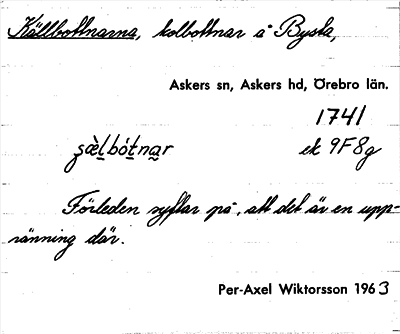 Källbottnarna, kolbottnar å Bysta,
Askers sn, Askers hd, Örebro län.
1741
ʂæ̀l̠bót̠na̠r ek 9F8g
Förleden syftar på, att det är en upp-
ränning där.
Per-Axel Wiktorsson 1963